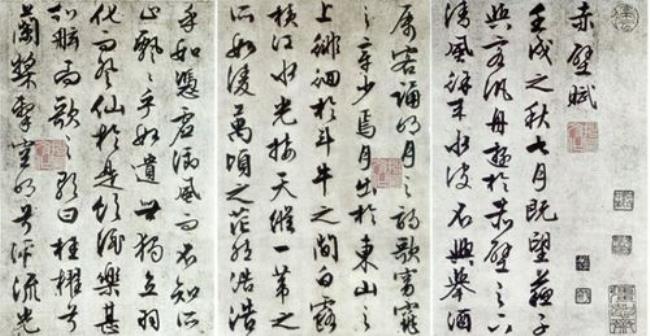 赤壁賦
壬戌之秋七月既望蘇子
與客汎舟遊於赤壁之下
清風徐來水波不興舉酒
屬客誦明月之詩歌窈窕
之章少焉月出於東山之
上徘徊於斗牛之間白露
橫江水光接天縱一葦之
所如凌萬頃之茫然浩浩
乎如憑虛御風而不知所
止飄〻乎如遺世獨立羽
化而登仙於是飲酒樂甚
扣舷而歌之歌曰桂櫂兮
蘭槳擊空明兮泝流光